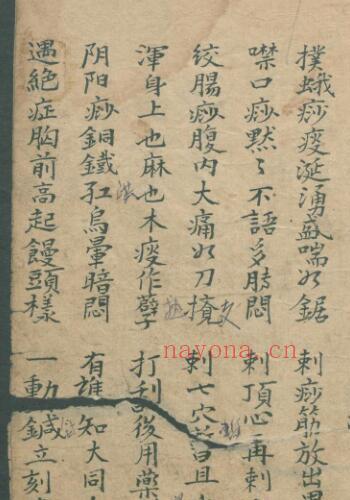 撲蛾痧痰涎湧盛喘如鋸 刺痧筋放出
噤口痧默〻不語多脹悶 刺頂心二再刺
絞腸痧腹內大痛如刀攪 刺七穴
渾身上也麻也木痰作孽 打刮後用藥
阴阳痧銅鐵紅烏暈暗悶 有誰知大同
遇絕症胸前高起饅頭樣 一動鍼立刻
nayona.cn